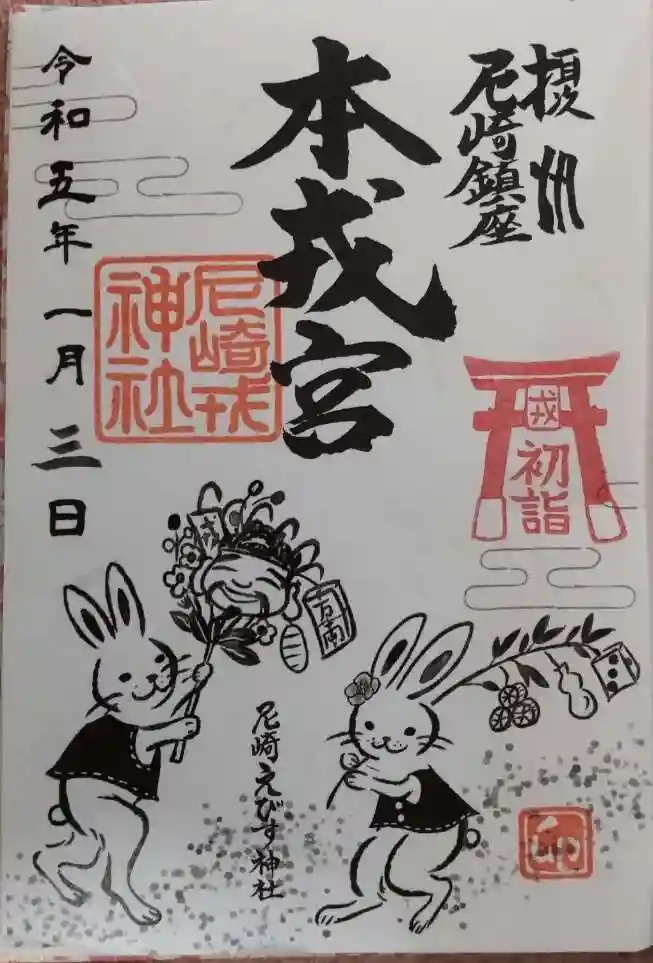 摂州
尼崎鎮座
本戎宮
尼崎戎
神社
令和五年一月三日
戎
初詣
戎
万両
尼崎えびす神社
卯